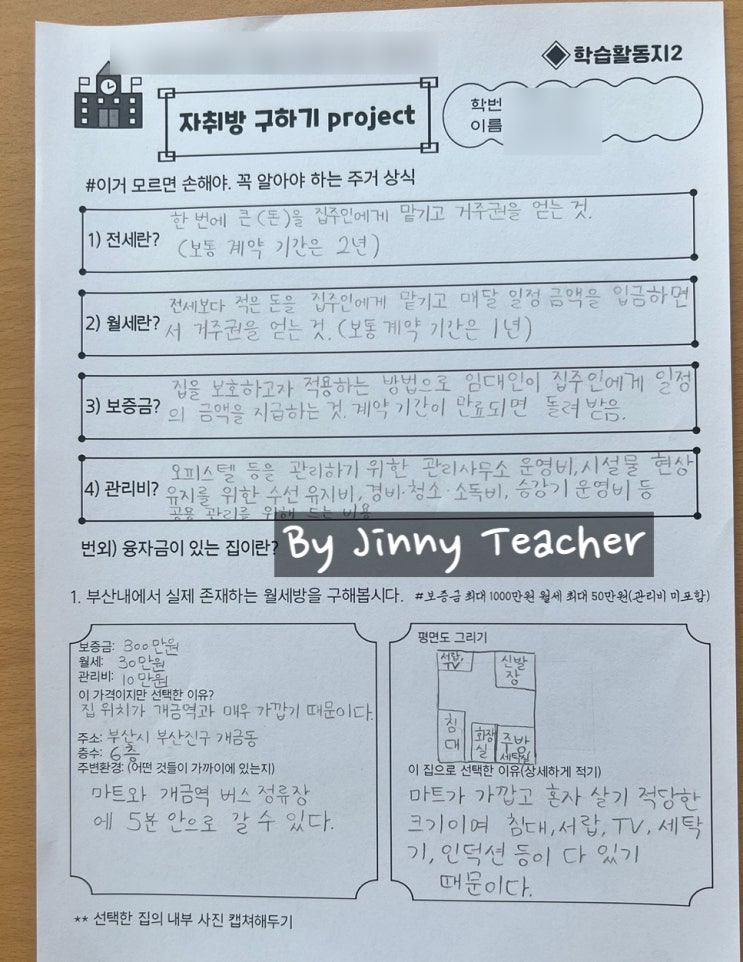 학습활동지2
자취방 구하기 project
학번
이름
#이거 모르면 손해야. 꼭 알아야 하는 주거 상식
1) 전세란?
한 번에 큰 (돈)을 집주인에게 맡기고 거주권을 얻는 것.
(보통 계약 기간은 2년)
2) 월세란?
전세보다 적은 돈을 집주인에게 맡기고 매달 일정 금액을 입금하면
서 거주권을 얻는 것. (보통 계약 기간은 1년)
3) 보증금?
집을 보호하고자 적용하는 방법으로 임대인이 집주인에게 일정
의 금액을 지급하는 것. 계약 기간이 만료되면 돌려 받음.
4) 관리비?
오피스텔 등을 관리하기 위한 관리사무소 운영비, 시설물 현상
유지를 위한 수선 유지비, 경비·청소·소독비, 승강기 운영비 등
공용 관리를 위해 드는 비용
번외) 융자금이 있는 집이란?
By Jinny Teacher
1. 부산내에서 실제 존재하는 월세방을 구해봅시다. #보증금 최대 1000만원 월세 최대 50만원(관리비 미포함)
보증금: 300만원
월세: 30만원
관리비: 10만원
이 가격이지만 선택한 이유?
집 위치가 개금역과 매우 가깝기 때문이다.
주소: 부산시 부산진구 개금동
층수: 6층
주변환경: (어떤 것들이 가까이에 있는지)
마트와 개금역 버스 정류장
에 5분 안으로 갈 수 있다.
평면도 그리기
서랍,
TV
신발
장
침
대
화장
실
주방
세탁실
이 집으로 선택한 이유(상세하게 적기)
마트가 가깝고 혼자 살기 적당한
크기이며 침대, 서랍, TV, 세탁
기, 인덕션 등이 다 있기
때문이다.
** 선택한 집의 내부 사진 캡쳐해두기